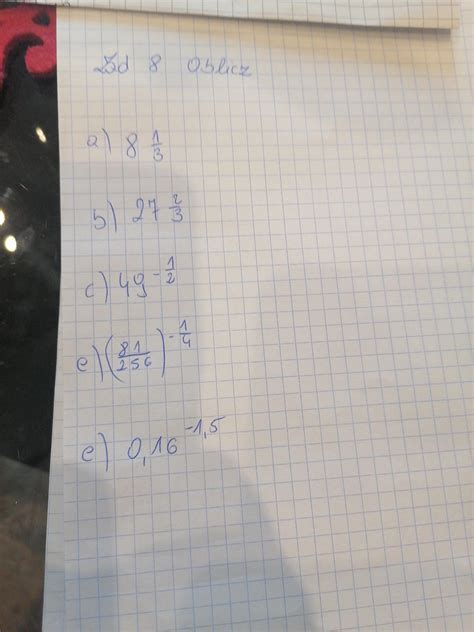 Zad 8 Oblicz
a) 8 1/3
b) 27 2/3
c) 49 -1/2
e) (81/256) -1/4
e) 0,16 -1,5